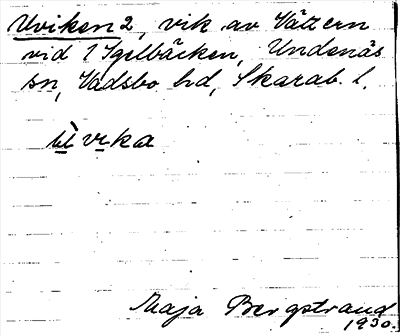 Uviken 2, vik av Vättern
vid 1 Igelbäcken, Undenäs
sn, Vadsbo hd, Skarab. l.
ù vika
Maja Bergstrand
1930.